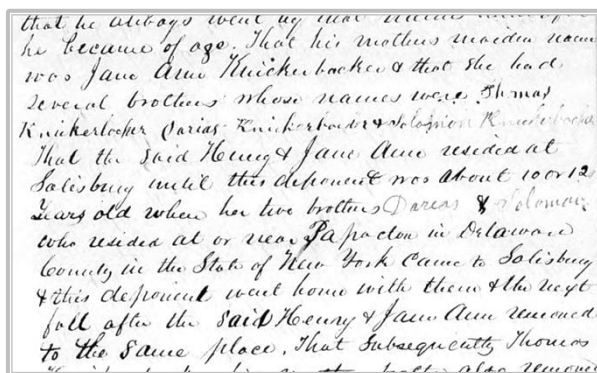 that he always went by that name
he became of age. That his mothers maiden name
was Jane Ann Knickerbacker & that she had
several brothers whose names were Thomas
Knickerbocker Darias Knickerbocker & Solomon Knickerbocker
That the said Henry & Jane Ann resided at
Salisbury until this deponent was about 10 or 12
years old when her two brothers Darias & Solomon
who resided at or near Papacton in Delaware
County in the State of New York came to Salisbury
& this deponent went home with them & the next
fall after the said Henry & Jane Ann removed
to the same place. That subsequently Thomas
also removed